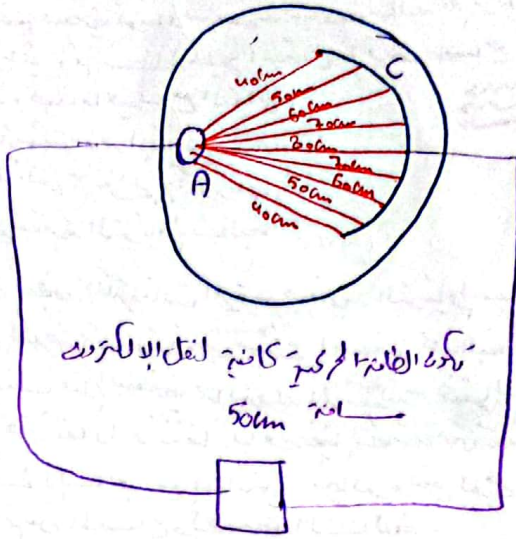 C
40cm
50cm
60cm
70cm
80cm
70cm
60cm
50cm
40cm
A
تكون الطاقة الحركية كافية لنقل الإلكترون
مسافة 50cm